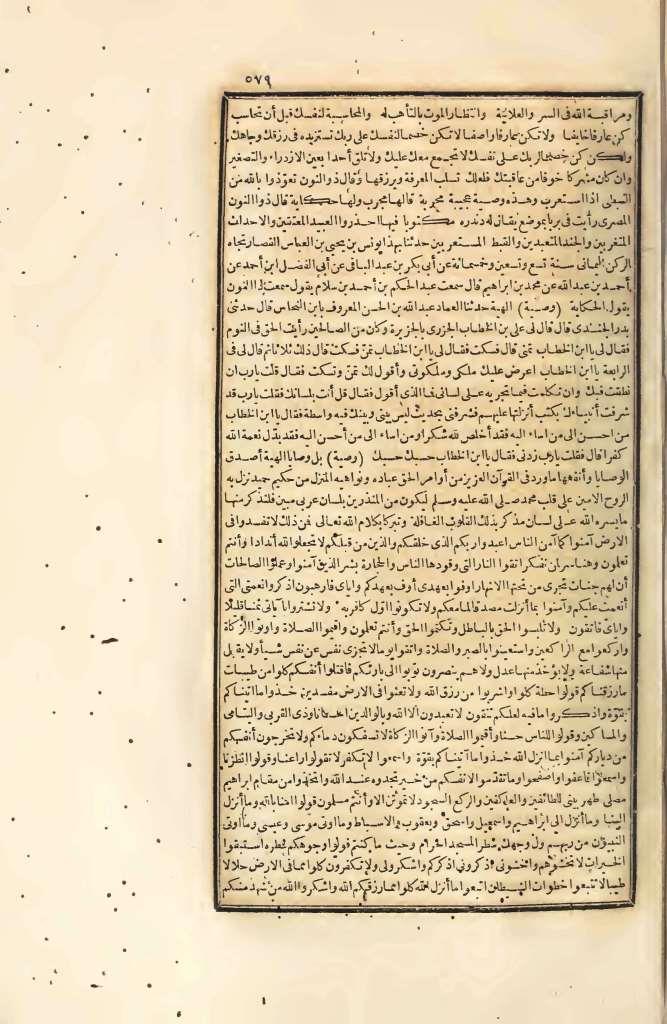 ٥٧٩
ومراقبة الله في السر والعلانية وانتظار الموت بالتأهب له والمحاسبة لنفسك قبل أن تحاسب
كن عارفا خائفا ولا تكن عارفا واصفا لا تكن خصما لنفسك على ربك تستزيده في رزقك وجاهك
ولكن كن خصما لربك على نفسك لا تجمع معك عليك ولا تلق أحدا بعين الازدراء والتصغير
وان كان مشركا خوفا من عاقبتك فلعلك تسلب المعرفة ويرزقها وقال ذو النون تعوذوا بالله من
النبطي اذا استعرب وهذه وصية عجيبة مجربة قالها مجرب ولها حكاية قال ذو النون
المصري رأيت في بربا بموضع يقال له دندره مكتوبا فيها احذروا العبيد المعتقين والاحداث
المتغربين والجند المتعبدين والقبط المستعربين حدثنا بهذا يونس بن يحيى بن العباس القصار تجاه
الركن اليماني سنة تسع وتسعين وخمسمائة عن أبي بكر بن عبد الباقي عن أبي الفضل ابن أحمد عن
أحمد بن عبد الله عن محمد بن ابراهيم قال سمعت عبد الحكم بن أحمد بن سلام يقول سمعت ذا النون
يقول الحكاية (وصية) الهية حدثنا العماد عبد الله بن الحسن المعروف بابن النحاس قال حدثني
بدر الجندي قال قال لي علي بن الخطاب الجزري بالجزيرة وكان من الصالحين رأيت الحق في النوم
فقال لي يا ابن الخطاب تمنّ قال فسكت فقال لي يا ابن الخطاب تمنّ فسكت قال ذلك ثلاثا ثم قال لي في
الرابعة يا ابن الخطاب اعرض عليك ملكي وملكوتي وأقول لك تمنّ وتسكت فقال قلت يا رب ان
نطقت فبك وان تكلمت فبما تجريه على لساني فما الذي أقول فقال قل أنت بلسانك فقلت يا رب قد
شرفت أنبياءك بكتب أنزلتها عليهم فشرفني بحديث ليس بيني وبينك فيه واسطة فقال يا ابن الخطاب
من احسن الى من اساء اليه فقد أخلص لله شكرا ومن اساء الى من أحسن اليه فقد بدّل نعمة الله
كفرا قال فقلت يا رب زدني فقال يا ابن الخطاب حسبك حسبك (وصية) بل وصايا الهية أصدق
الوصايا وأنفعها ما ورد في القرآن العزيز من أوامر الحق عباده ونواهيه المنزل من حكيم حميد نزل به
الروح الامين على قلب محمد صلى الله عليه وسلم ليكون من المنذرين بلسان عربي مبين فلنذكر منها
ما يسره الله على لسان مذكر بذلك القلوب الغافلة وتبركا بكلام الله تعالى فمن ذلك لا تفسدوا في
الارض آمنوا كما آمن الناس اعبدوا ربكم الذي خلقكم والذين من قبلكم لا تجعلوا لله أندادا وأنتم
تعلمون وهنا سر لمن تفكر اتقوا النار التي وقودها الناس والحجارة بشر الذين آمنوا وعملوا الصالحات
أن لهم جنات تجري من تحتها الانهار اوفوا بعهدي أوف بعهدكم واياي فارهبون اذكروا نعمتي التي
أنعمت عليكم وآمنوا بما أنزلت مصدقا لما معكم ولا تكونوا أول كافر به ولا تشتروا بآياتي ثمنا قليلا
واياي فاتقون ولا تلبسوا الحق بالباطل وتكتموا الحق وأنتم تعلمون واقيموا الصلاة وآتوا الزكاة
واركعوا مع الراكعين واستعينوا بالصبر والصلاة واتقوا يوما لا تجزي نفس عن نفس شيأ ولا يقبل
منها شفاعة ولا يؤخذ منها عدل ولا هم ينصرون توبوا الى بارئكم فاقتلوا أنفسكم كلوا من طيبات
ما رزقناكم قولوا حطة كلوا واشربوا من رزق الله ولا تعثوا في الارض مفسدين خذوا ما آتيناكم
بقوّة واذكروا ما فيه لعلكم تتقون لا تعبدون الا الله وبالوالدين احسانا وذي القربى واليتامى
والمساكين وقولوا للناس حسنا وأقيموا الصلاة وآتوا الزكاة لا تسفكون دماءكم ولا تخرجون أنفسكم
من دياركم آمنوا بما أنزل الله خذوا ما آتيناكم بقوّة واسمعوا لا تكفر لا تقولوا راعنا وقولوا انظرنا
واسمعوا فاعفوا واصفحوا وما تقدموا لانفسكم من خير تجدوه عند الله واتخذوا من مقام ابراهيم
مصلى طهر بيتي للطائفين والعاكفين والركع السجود لا تموتن الا وأنتم مسلمون قولوا آمنا بالله وما أنزل
الينا وما أنزل الى ابراهيم واسمعيل واسحق ويعقوب والاسباط وما اوتي موسى وعيسى وما أوتي
النبيون من ربهم ولّ وجهك شطر المسجد الحرام وحيث ما كنتم فولوا وجوهكم شطره استبقوا
الخيرات لا تخشوهم واخشوني اذكروني اذكركم واشكروا لي ولا تكفرون كلوا مما في الارض حلالا
طيبا لا تتبعوا خطوات الشيطان اتبعوا ما أنزل الله كلوا مما رزقكم الله واشكروا لله من شهد منكم